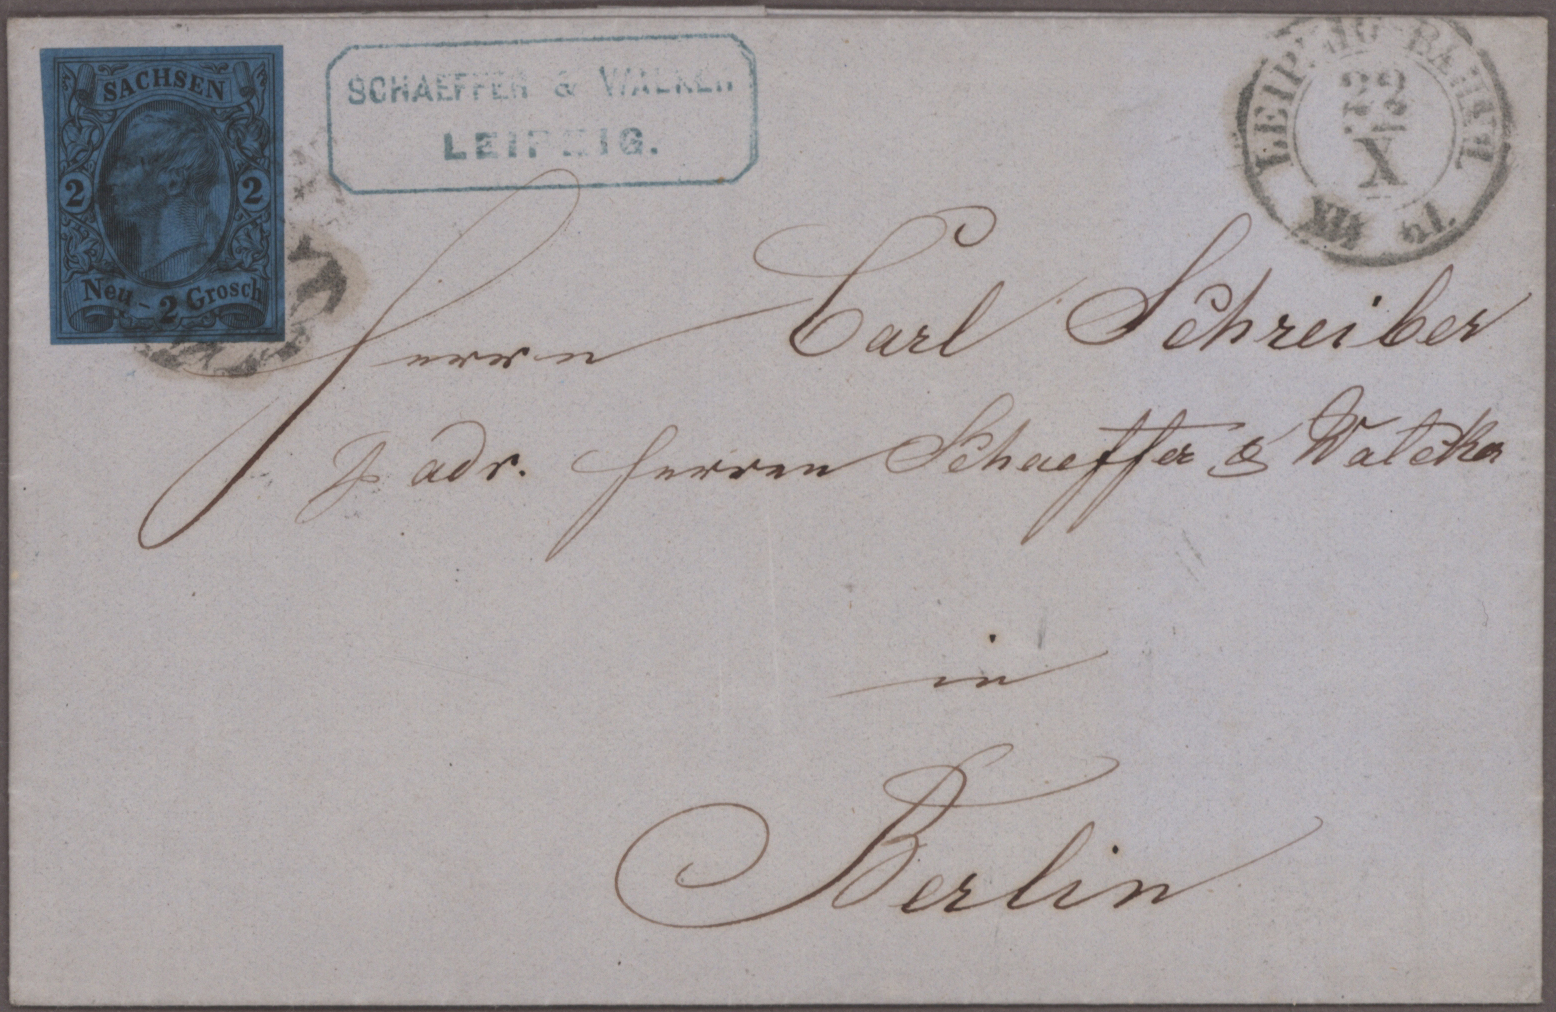 SACHSEN
2 2
Neu - 2 Grosch
SCHAEFFER & WALKER
LEIPZIG.
LEIPZIG BAHNH.
22
X
XII
Herrn Carl Schreiber
p adr. Herren Schaeffer & Walcker
in
Berlin